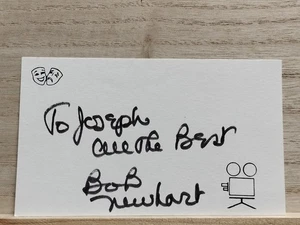 To Joseph
all the Best
Bob
Newhart